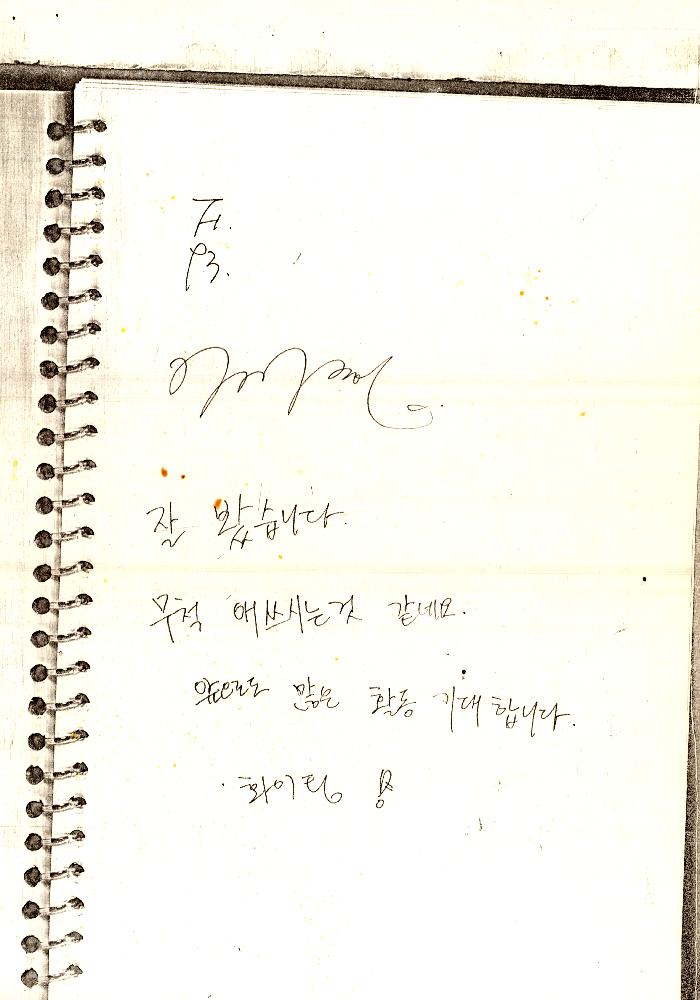 잘 봤습니다.
무척 애쓰시는것 같네요.
앞으로도 많은 활동 기대 합니다.
화이팅 !